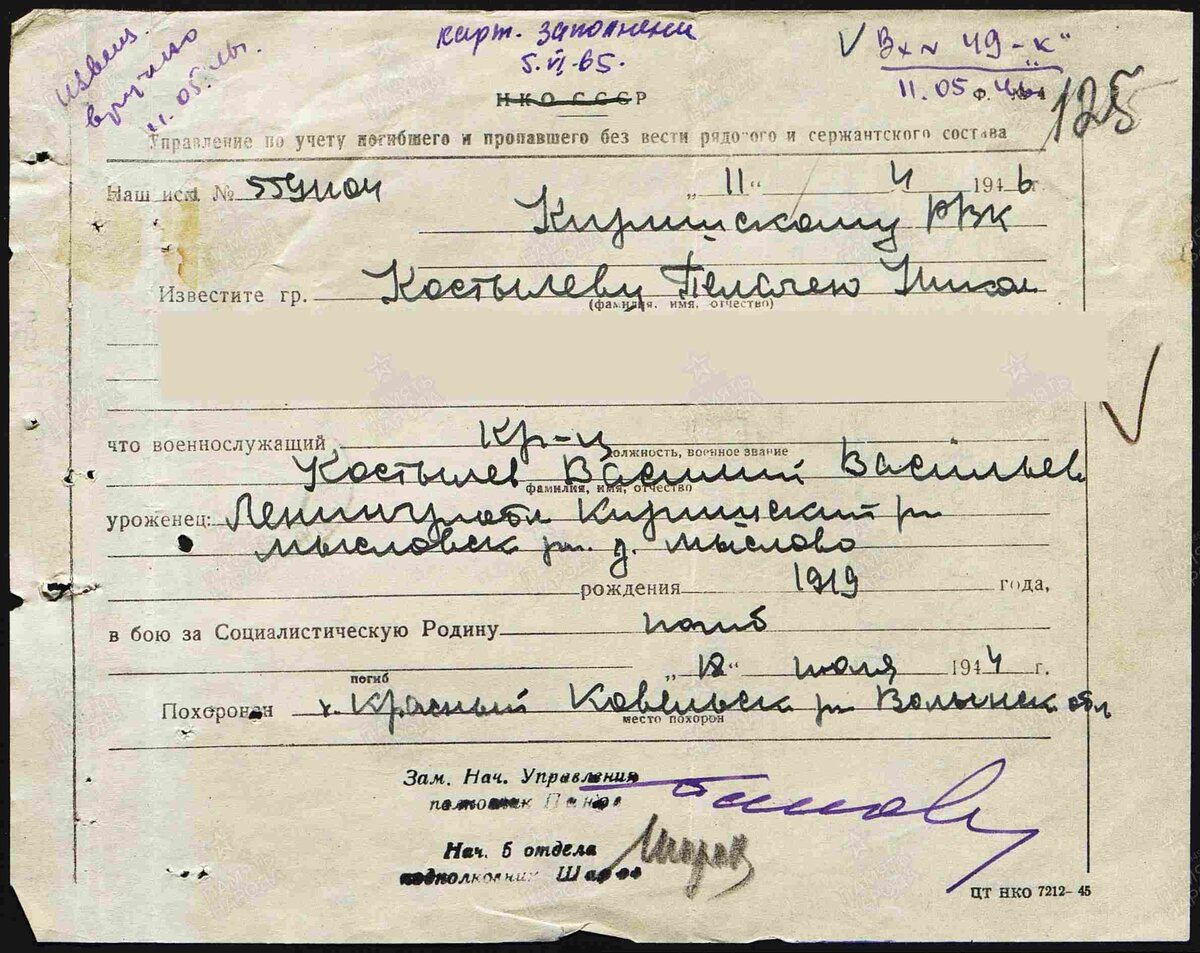 извещ.
вручено
11.05.46г.
карт. заполнена
5.VI.65.
V Вх № 49-"к"
11.05 ф. 46
125
НКО СССР
Управление по учету погибшего и пропавшего без вести рядового и сержантского состава
Наш исх. № 559404 „11“ 4 1946г.
Киришскому РВК
Известите гр. Костылеву Никол
(фамилия, имя, отчество)
что военнослужащий Кр-ц
должность, военное звание
Костылев Василий Васильев
фамилия, имя, отчество
уроженец: Ленингр обл Киришский рн
мысловск д. мыслово
рождения 1919 года,
в бою за Социалистическую Родину погиб
„18“ июля 1944 г.
погиб
Похоронен х. Красный Ковельск рн Волынск обл
место похорон
Зам. Нач. Управления
полковник Панов
Нач. 6 отдела
подполковник Шаров
Шаров
ЦТ НКО 7212-45